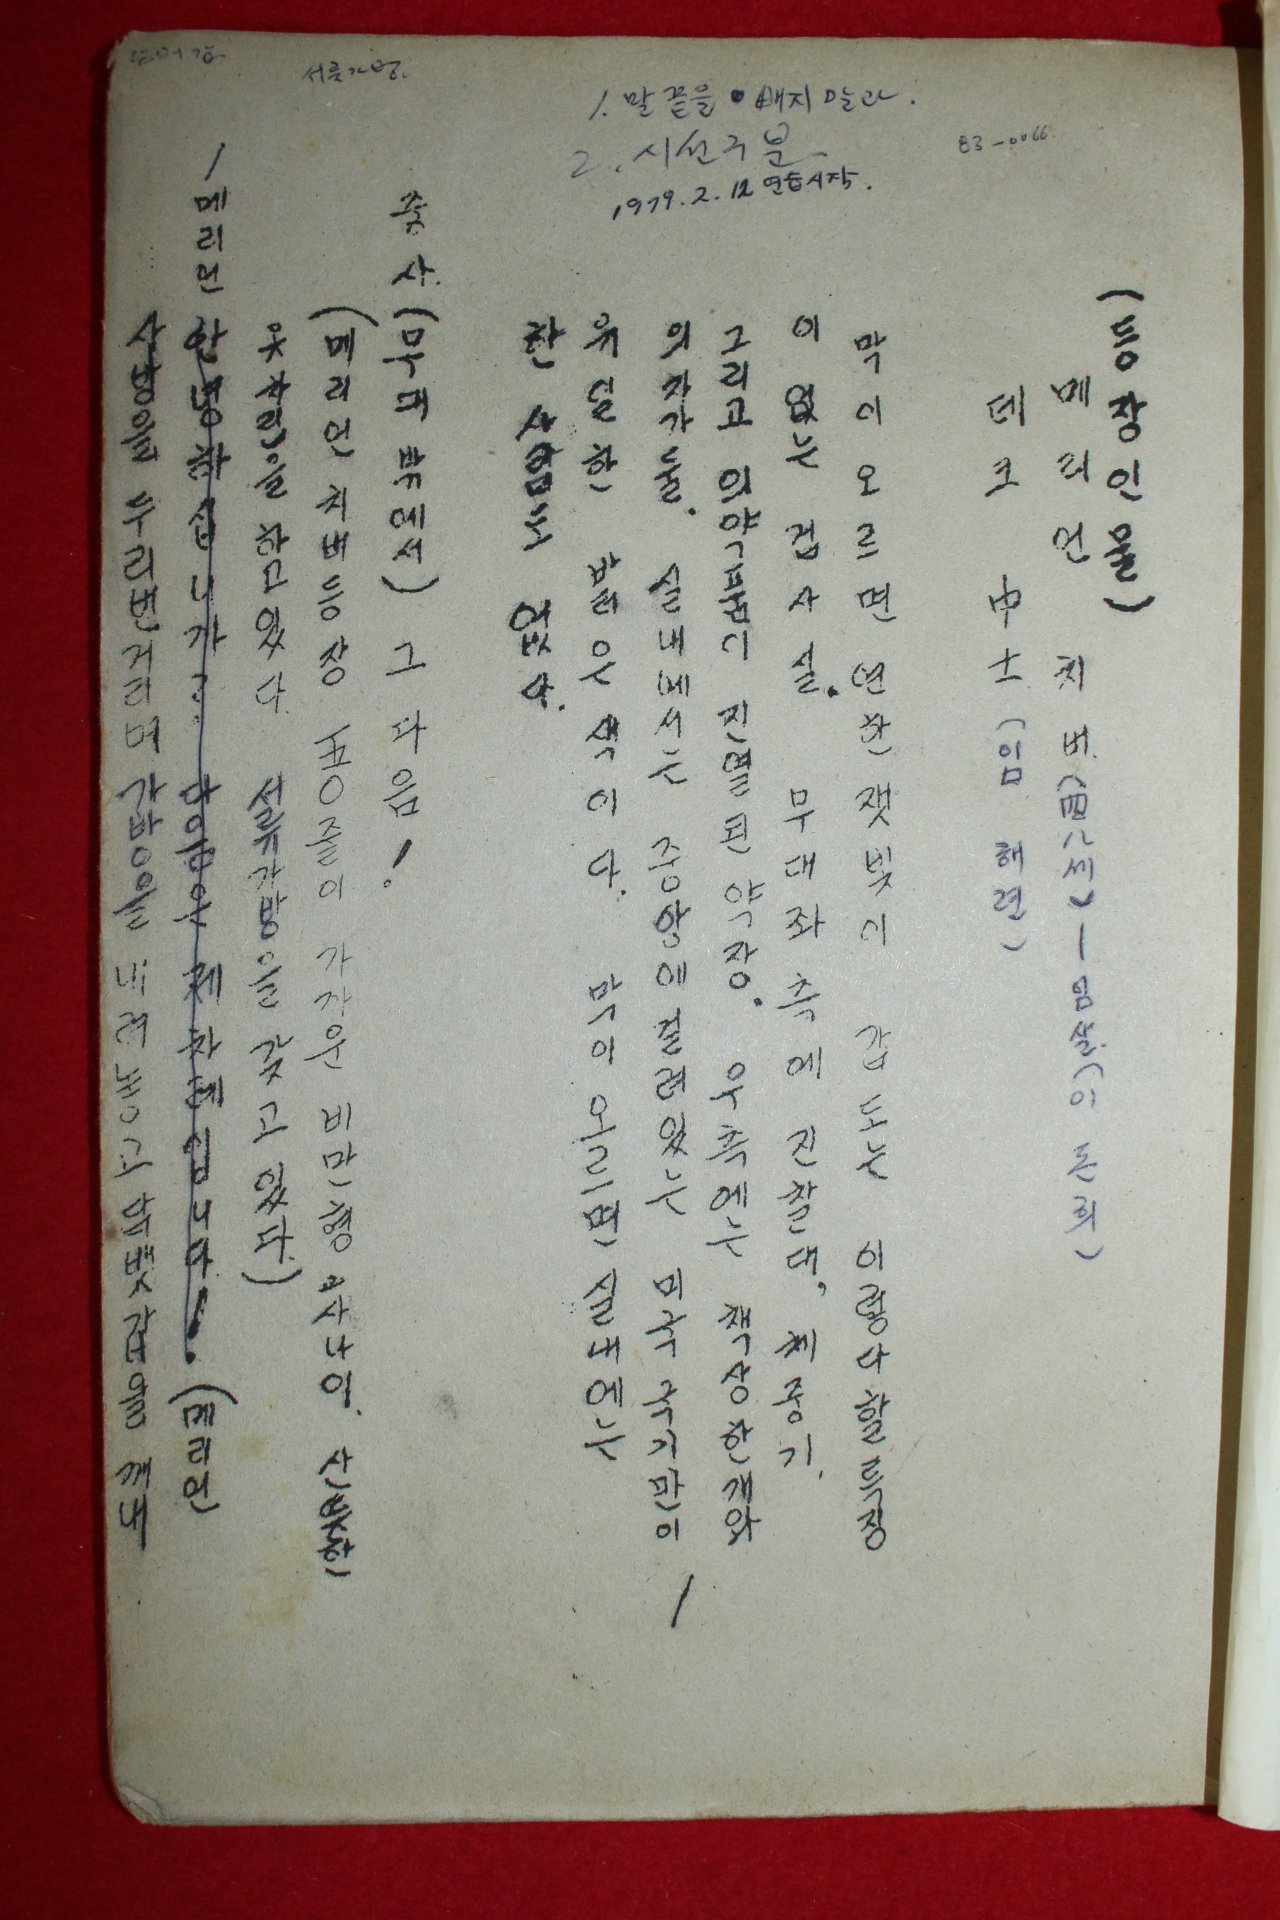 서류가방.
1. 말 끝을 빼지 말라.
2. 시선구분
1979. 2. 12 연습시작.
83-0066
(등장인물)
메리언 치버 (四八세) — 임살(이 돈희)
데크 中士 (임 해련)
막이 오르면 연한 잿빛이 감도는 이렇다 할 특징
이 없는 검사실. 무대 좌측에 진찰대, 체중기,
그리고 의약품이 진열된 약장. 우측에는 책상 한개와
의자가 둘. 실내에서는 중앙에 걸려있는 미국 국기만이
유일한 밝은 색이다. 막이 오르면 실내에는
한 사람도 없다.
中사. (무대 밖에서) 그 다음!
(메리언 치버 등장 五十줄이 가까운 비만형 사나이. 산뜻한
옷차림을 하고 있다. 서류가방을 갖고 있다.)
메리언 안녕하십니까? 다음은 제 차례입니다! (메리언
사방을 두리번거리며 가방을 내려놓고 담뱃갑을 꺼내